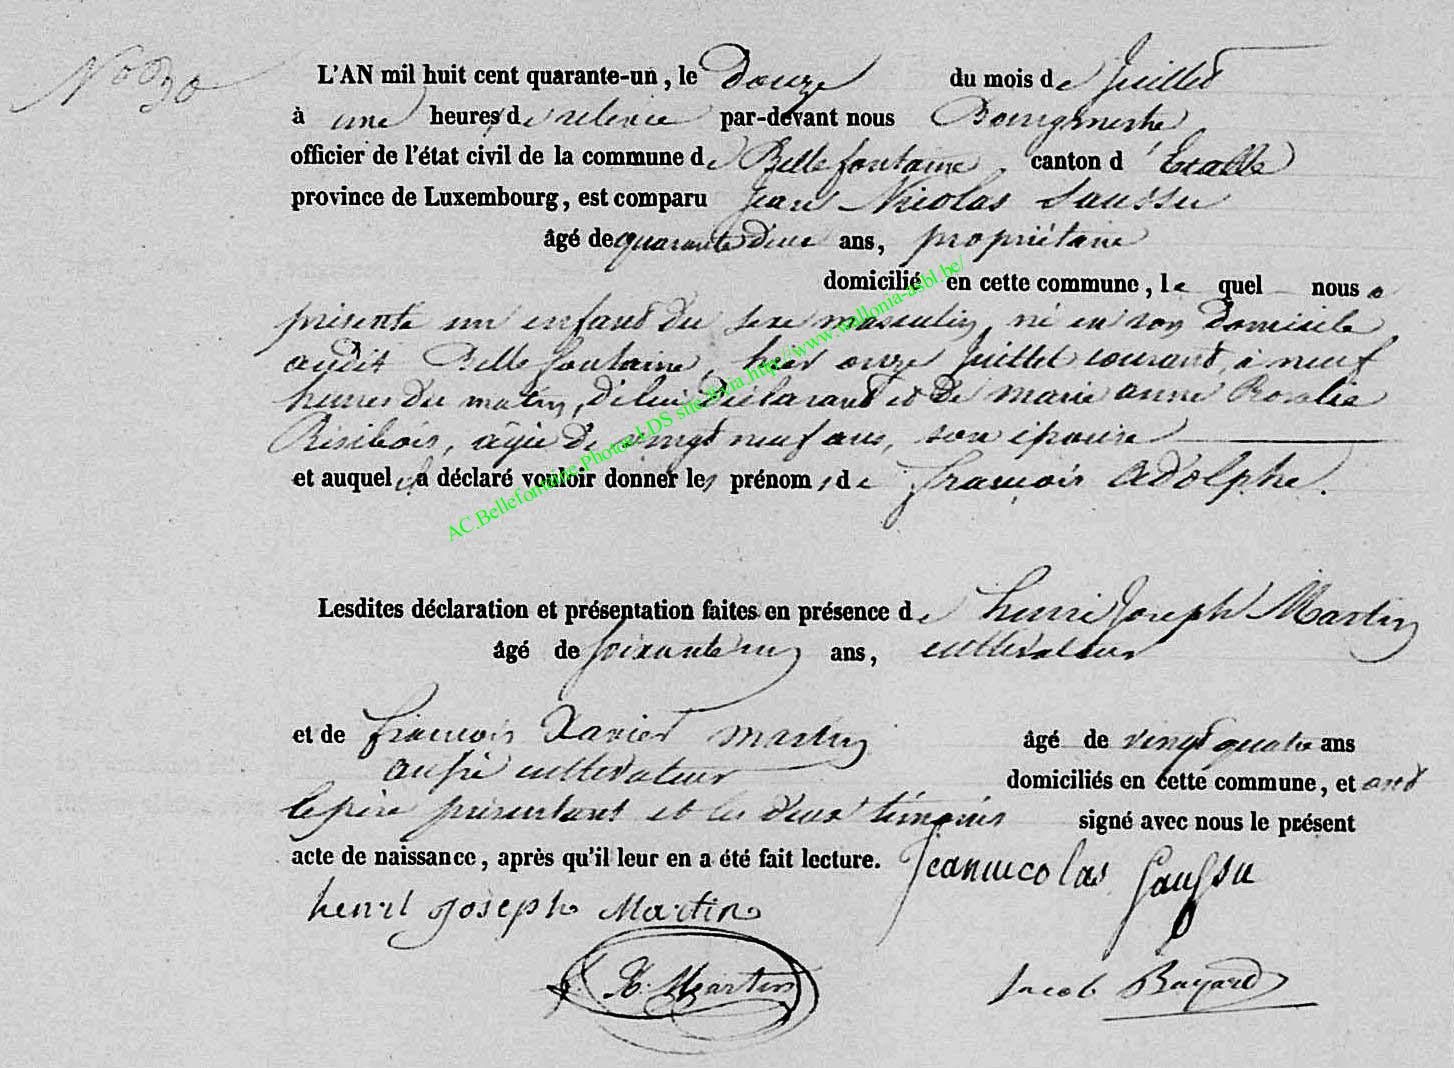 No 30
L'AN mil huit cent quarante-un, le Douze du mois de Juillet
à une heures de relevée par-devant nous Bourgmestre
officier de l'état civil de la commune de Bellefontaine, canton d'Etalle
province de Luxembourg, est comparu Jean Nicolas Saussu
âgé de quarante deux ans, propriétaire
domicilié en cette commune, le quel nous a
présenté un enfant du sexe masculin, né en son domicile
audit Bellefontaine, hier onze Juillet courant, à neuf
heures du matin, de lui déclarant et de marie anne Rosalie
âgée de vingt neuf ans, son épouse
et auquel il a déclaré vouloir donner les prénoms de françois Adolphe.
Lesdites déclaration et présentation faites en présence de henri Joseph Martin
âgé de soixante un ans, cultivateur
et de françois Xavier martin âgé de vingt quatre ans
aussi cultivateur domiciliés en cette commune, et ont
le père présentant et les deux témoins signé avec nous le présent
acte de naissance, après qu'il leur en a été fait lecture. Jean nicolas Saussu
henri Joseph Martin
f. X. Martin Jacob Bayard
AC.Bellefontaine.Photos LDS site Avia.http://www.wallonia-asbl.be/